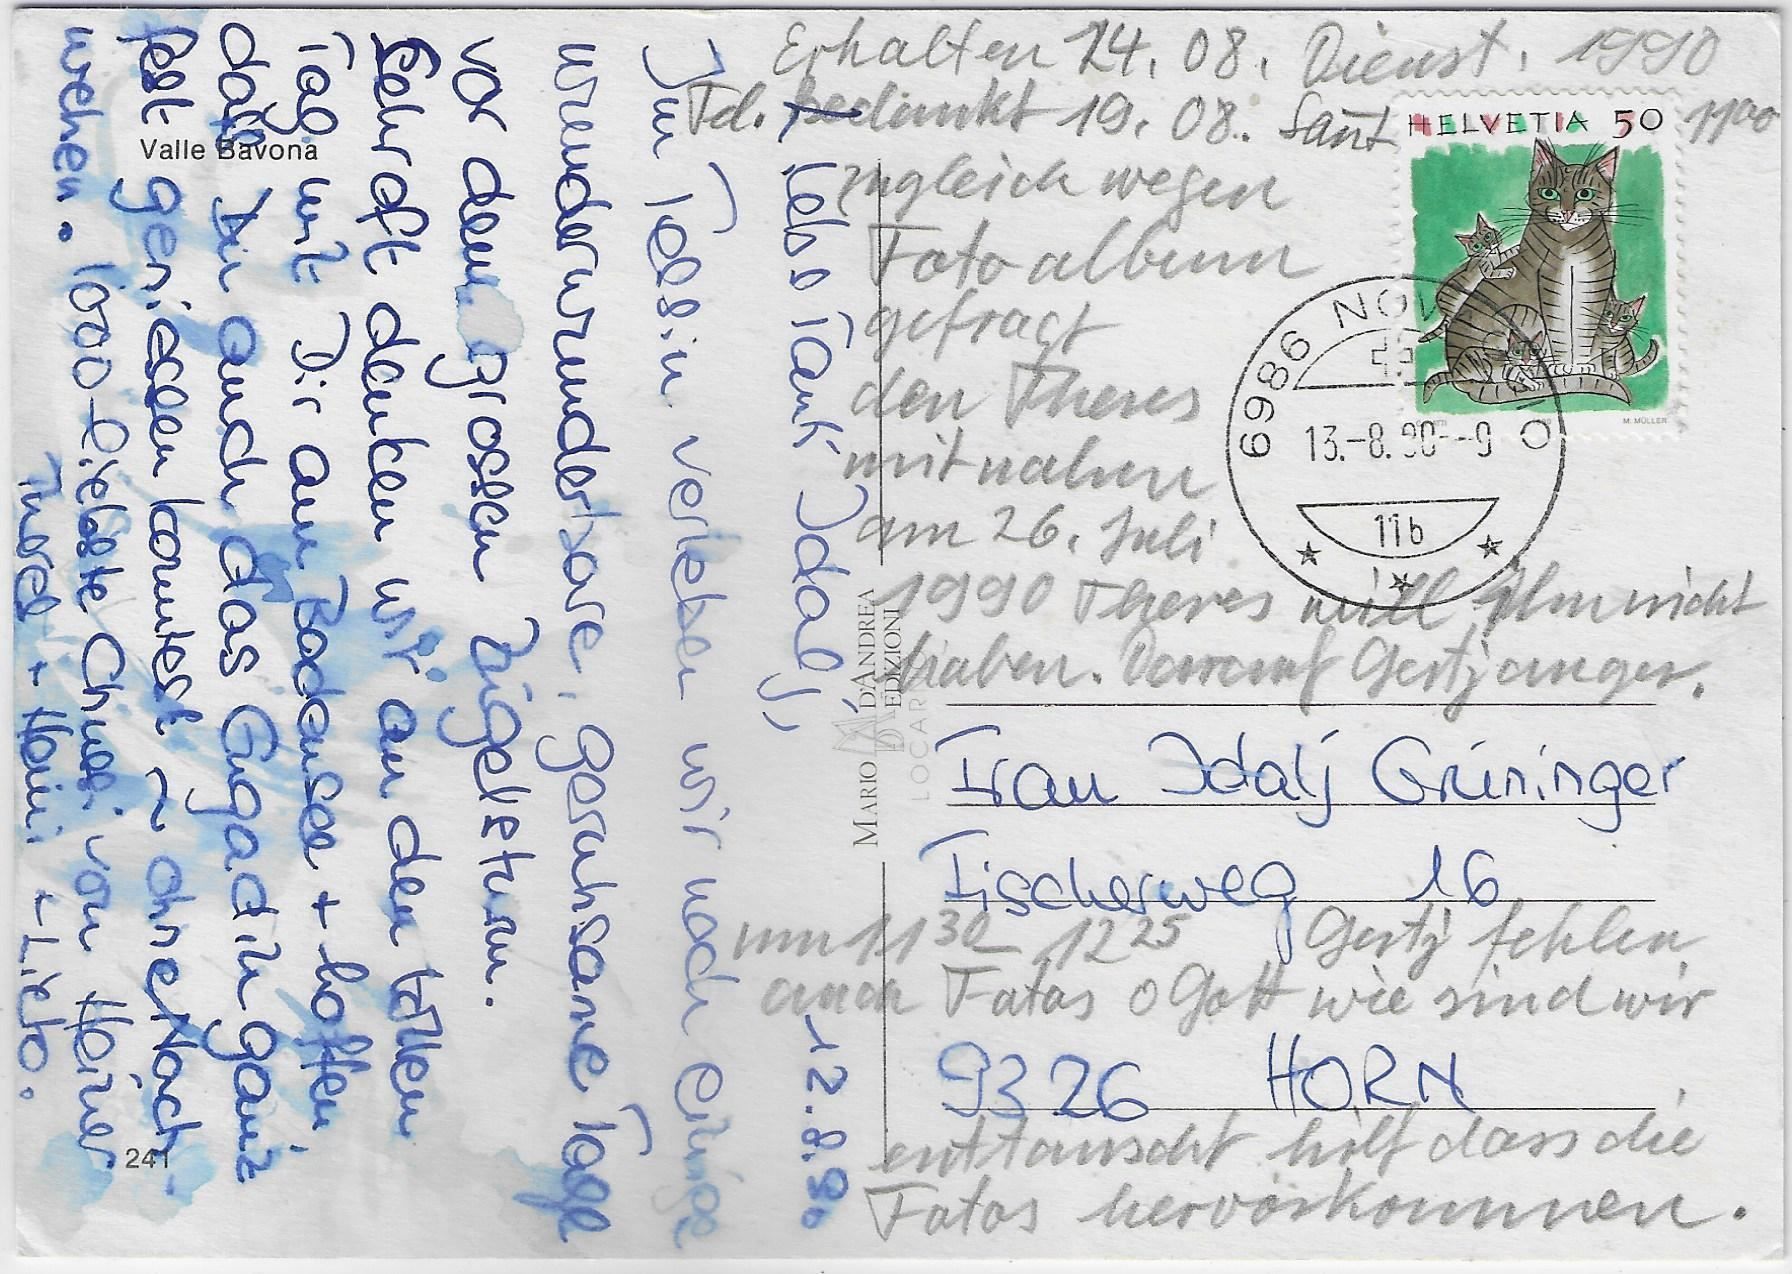 Valle Bavona
241
12.8.90
Liebe Tanti Idaly,
Im Tessin verleben wir noch einige
wunderwunderbare, geruhsame Tage
vor dem grossen Zügelsturm.
Sehr oft denken wir an den tollen
Tag mit Dir am Bodensee + hoffen,
dass Dir auch das Engadin ganz
fest geniessen konntest ~ ohne Nach-
wehen. 1000 liebste von Heiner
+ Heini + Lilo.
MARIO DANDREA
EDIZIONI
LOCARNO
HELVETIA 50
M. MÜLLER
6986 NOV
13.-8.90--9
11b
Erhalten 14. 08. Dienst. 1990
Td. bedankt 19. 08. Sant 11 00
zugleich wegen
Fotoalbum
gefragt
den Theres
mitnahm
am 26. Juli
1990 Theres will ihn nicht
haben. Darauf Gertj anger.
Frau Idalj Grüninger
Fischerweg 16
um 11 30 - 12 25 Gertj fehlen
auch Fotos o Gott wie sind wir
9326 HORN
enttäuscht hilf dass die
Fotos hervorkommen.